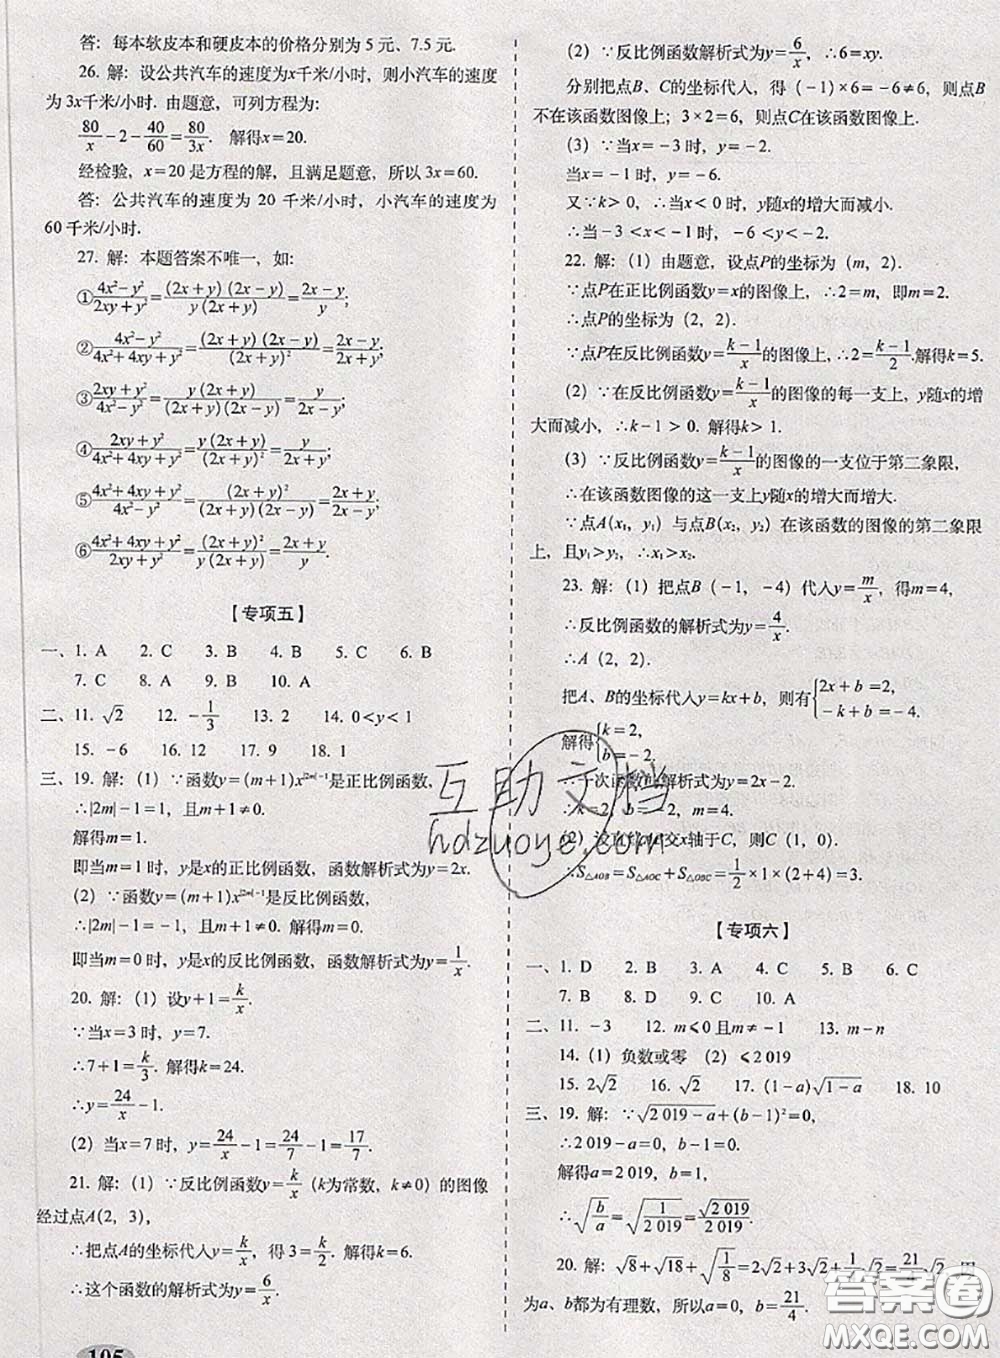 答：每本软皮本和硬皮本的价格分别为 5 元、7.5 元.
26. 解：设公共汽车的速度为x千米/小时，则小汽车的速度
为 3x千米/小时. 由题意，可列方程为：
80/x－2－40/60＝80/3x. 解得x＝20.
经检验，x＝20 是方程的解，且满足题意，所以 3x＝60.
答：公共汽车的速度为 20 千米/小时，小汽车的速度为
60 千米/小时.
27. 解：本题答案不唯一，如：
①(4x²－y²)/(2xy＋y²)＝(2x＋y)(2x－y)/y(2x＋y)＝(2x－y)/y;
②(4x²－y²)/(4x²＋4xy＋y²)＝(2x＋y)(2x－y)/(2x＋y)²＝(2x－y)/(2x＋y);
③(2xy＋y²)/(4x²－y²)＝y(2x＋y)/(2x＋y)(2x－y)＝y/(2x－y);
④(2xy＋y²)/(4x²＋4xy＋y²)＝y(2x＋y)/(2x＋y)²＝y/(2x＋y);
⑤(4x²＋4xy＋y²)/(4x²－y²)＝(2x＋y)²/(2x＋y)(2x－y)＝(2x＋y)/(2x－y);
⑥(4x²＋4xy＋y²)/(2xy＋y²)＝(2x＋y)²/y(2x＋y)＝(2x＋y)/y.
【专项五】
一、1. A 2. C 3. B 4. B 5. C 6. B
7. C 8. A 9. B 10. A
二、11. √2 12. －1/3 13. 2 14. 0＜y＜1
15. －6 16. 12 17. 9 18. 1
三、19. 解：（1）∵函数y＝(m＋1)x^(|2m|－1)是正比例函数，
∴|2m|－1＝1，且m＋1≠0.
解得m＝1.
即当m＝1时，y是x的正比例函数，函数解析式为y＝2x.
（2）∵函数y＝(m＋1)x^(|2m|－1)是反比例函数，
∴|2m|－1＝－1，且m＋1≠0. 解得m＝0.
即当m＝0时，y是x的反比例函数，函数解析式为y＝1/x.
20. 解：（1）设y＋1＝k/x.
∵当x＝3时，y＝7.
∴7＋1＝k/3. 解得k＝24.
∴y＝24/x－1.
（2）当x＝7时，y＝24/x－1＝24/7－1＝17/7.
21. 解：（1）∵反比例函数y＝k/x（k为常数，k≠0）的图像
经过点A(2, 3)，
∴把点A的坐标代入y＝k/x，得 3＝k/2. 解得k＝6.
∴这个函数的解析式为y＝6/x.
105
（2）∵反比例函数解析式为y＝6/x，∴6＝xy.
分别把点B、C的坐标代入，得（－1）×6＝－6≠6，则点B
不在该函数图像上；3×2＝6，则点C在该函数图像上.
（3）∵当x＝－3时，y＝－2.
当x＝－1时，y＝－6.
又∵k＞0，∴当x＜0时，y随x的增大而减小.
∴当－3＜x＜－1时，－6＜y＜－2.
22. 解：（1）由题意，设点P的坐标为（m，2）.
∵点P在正比例函数y＝x的图像上，∴2＝m，即m＝2.
∴点P的坐标为（2，2）.
∵点P在反比例函数y＝(k－1)/x的图像上，∴2＝(k－1)/2.解得k＝5.
（2）∵在反比例函数y＝(k－1)/x的图像的每一支上，y随x的增
大而减小，∴k－1＞0. 解得k＞1.
（3）∵反比例函数y＝(k－1)/x的图像的一支位于第二象限，
∴在该函数图像的这一支上y随x的增大而增大.
∵点A(x₁，y₁）与点B(x₂，y₂）在该函数的图像的第二象限
上，且y₁＞y₂，∴x₁＞x₂.
23. 解：（1）把点B（－1，－4）代入y＝m/x，得m＝4，
∴反比例函数的解析式为y＝4/x.
∴A（2，2）.
把A、B的坐标代入y＝kx＋b，则有{2x＋b＝2，－k＋b＝－4.
解得{k＝2，b＝－2.
∴一次函数的解析式为y＝2x－2.
∴k＝2，b＝－2，m＝4.
（2）设直线AB交x轴于C，则C（1，0）.
∵S△AOB＝S△AOC＋S△OBC＝1/2×1×(2＋4)＝3.
【专项六】
一、1. D 2. B 3. A 4. C 5. C 6. C
7. B 8. D 9. C 10. A
二、11. －3 12. m≤0且m≠－1 13. m－n
14.（1）负数或零 （2）≤2 019
15. 2√2 16. √2 17.（1－a)√(1－a) 18. 10
三、19. 解：∵√(2 019－a)＋(b－1)²＝0，
∴2 019－a＝0，b－1＝0.
解得a＝2 019，b＝1，
∴√(b/a)＝√(1/2 019)＝√2 019/2 019.
20. 解：√8＋√18＋√(1/8)＝2√2＋3√2＋1/4√2＝21/4√2，因
为a、b都为有理数，所以a＝0，b＝21/4.
互助文档
hdzuoye.com
答案圈
MXQE.COM